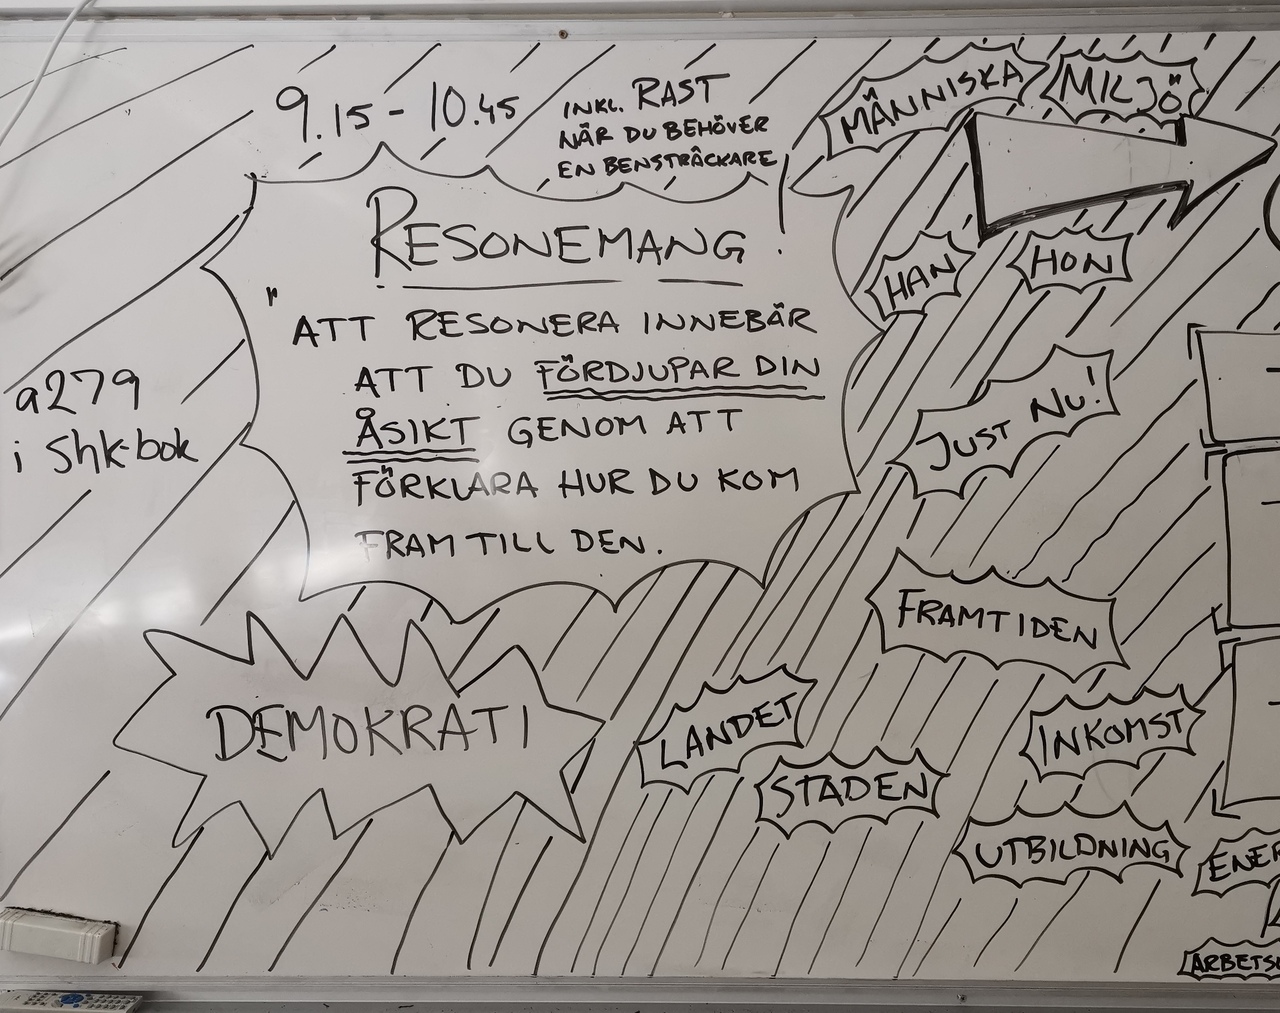 9.15 - 10.45
INKL. RAST
NÄR DU BEHÖVER
EN BENSTRÄCKARE!
RESONEMANG
"ATT RESONERA INNEBÄR
ATT DU FÖRDJUPAR DIN
ÅSIKT GENOM ATT
FÖRKLARA HUR DU KOM
FRAM TILL DEN.
a279
i Shk-bok
DEMOKRATI
MÄNNISKA
MILJÖ
HAN
HON
JUST NU!
FRAMTIDEN
LANDET
STADEN
INKOMST
UTBILDNING
ENER
ARBETS